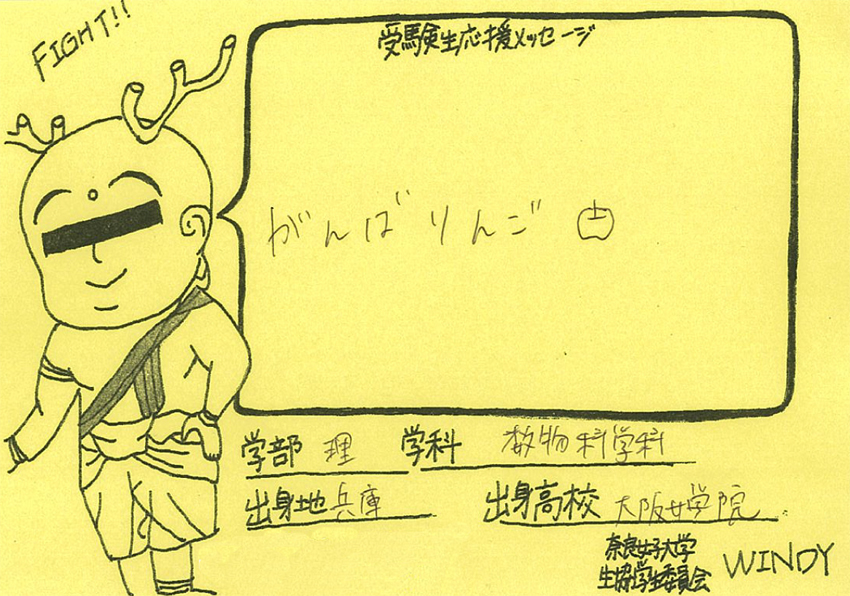 FIGHT!!
受験生応援メッセージ
がんばりんご
学部 理 学科 数物科学科
出身地 兵庫 出身高校 大阪女学院
奈良女子大学
生協学生委員会 WINDY